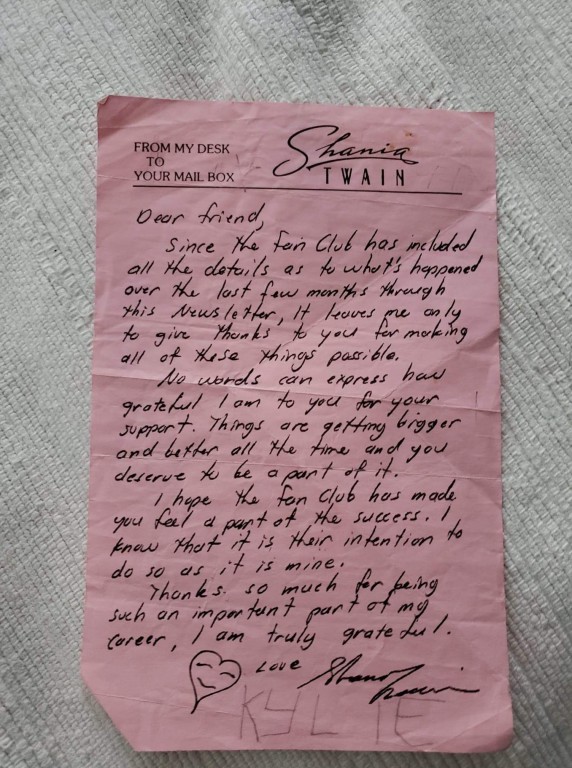 FROM MY DESK
TO
YOUR MAIL BOX
Shania
TWAIN
Dear friend,
Since the Fan Club has included
all the details as to what's happened
over the last few months through
this Newsletter, It leaves me only
to give thanks to you for making
all of these things possible.
No words can express how
grateful I am to you for your
support. Things are getting bigger
and better all the time and you
deserve to be a part of it.
I hope the Fan Club has made
you feel a part of the success. I
know that it is their intention to
do so as it is mine.
Thanks so much for being
such an important part of my
career, I am truly grateful.
Love Shania Twain
KYLIE